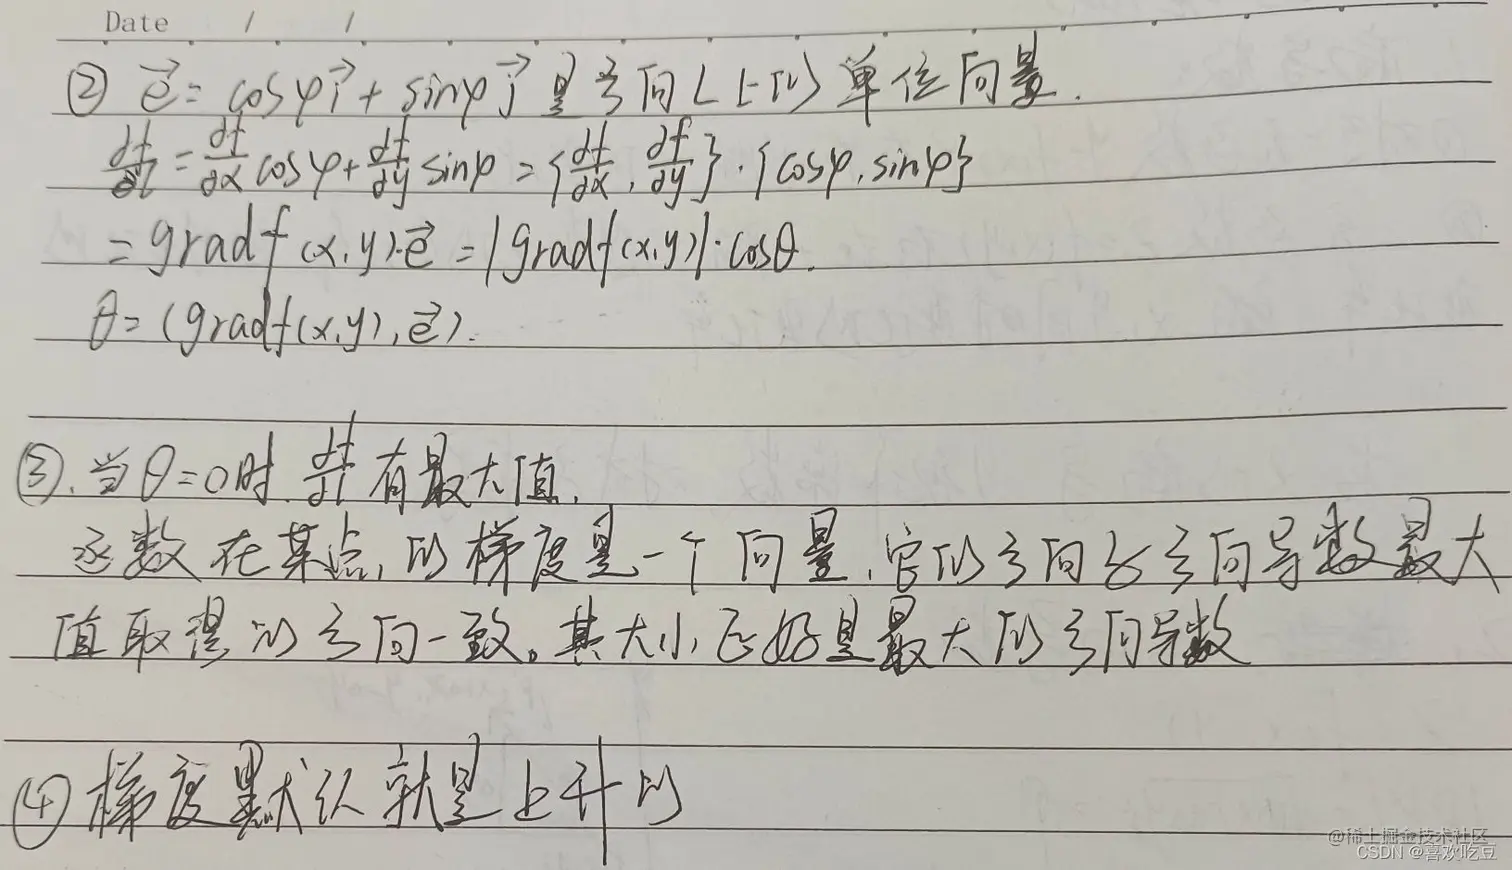 Date / /
② e⃗ = cosφi⃗ + sinφj⃗ 是方向L上的单位向量.
∂f/∂l = ∂f/∂x cosφ + ∂f/∂y sinφ = {∂f/∂x, ∂f/∂y}·{cosφ, sinφ}
= gradf(x,y)·e⃗ = |gradf(x,y)|·cosθ.
θ = (gradf(x,y), e⃗).
③. 当θ=0时. ∂f/∂l 有最大值.
函数在某点, 的梯度是一个向量, 它的方向与方向导数最大
值取得的方向一致。其大小正好是最大的方向导数
④ 梯度默认就是上升的
@稀土掘金技术社区
CSDN @喜欢吃豆